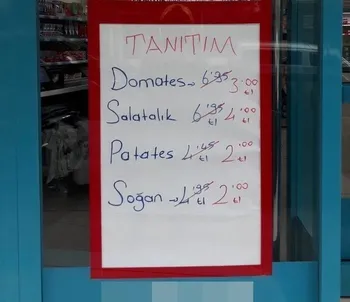 TANITIM
Domates → 6.95 3.00 tl
Salatalık 6.95 tl 4.00 tl
Patates 4.45 tl 2.00 tl
Soğan → 4.95 tl 2.00 tl